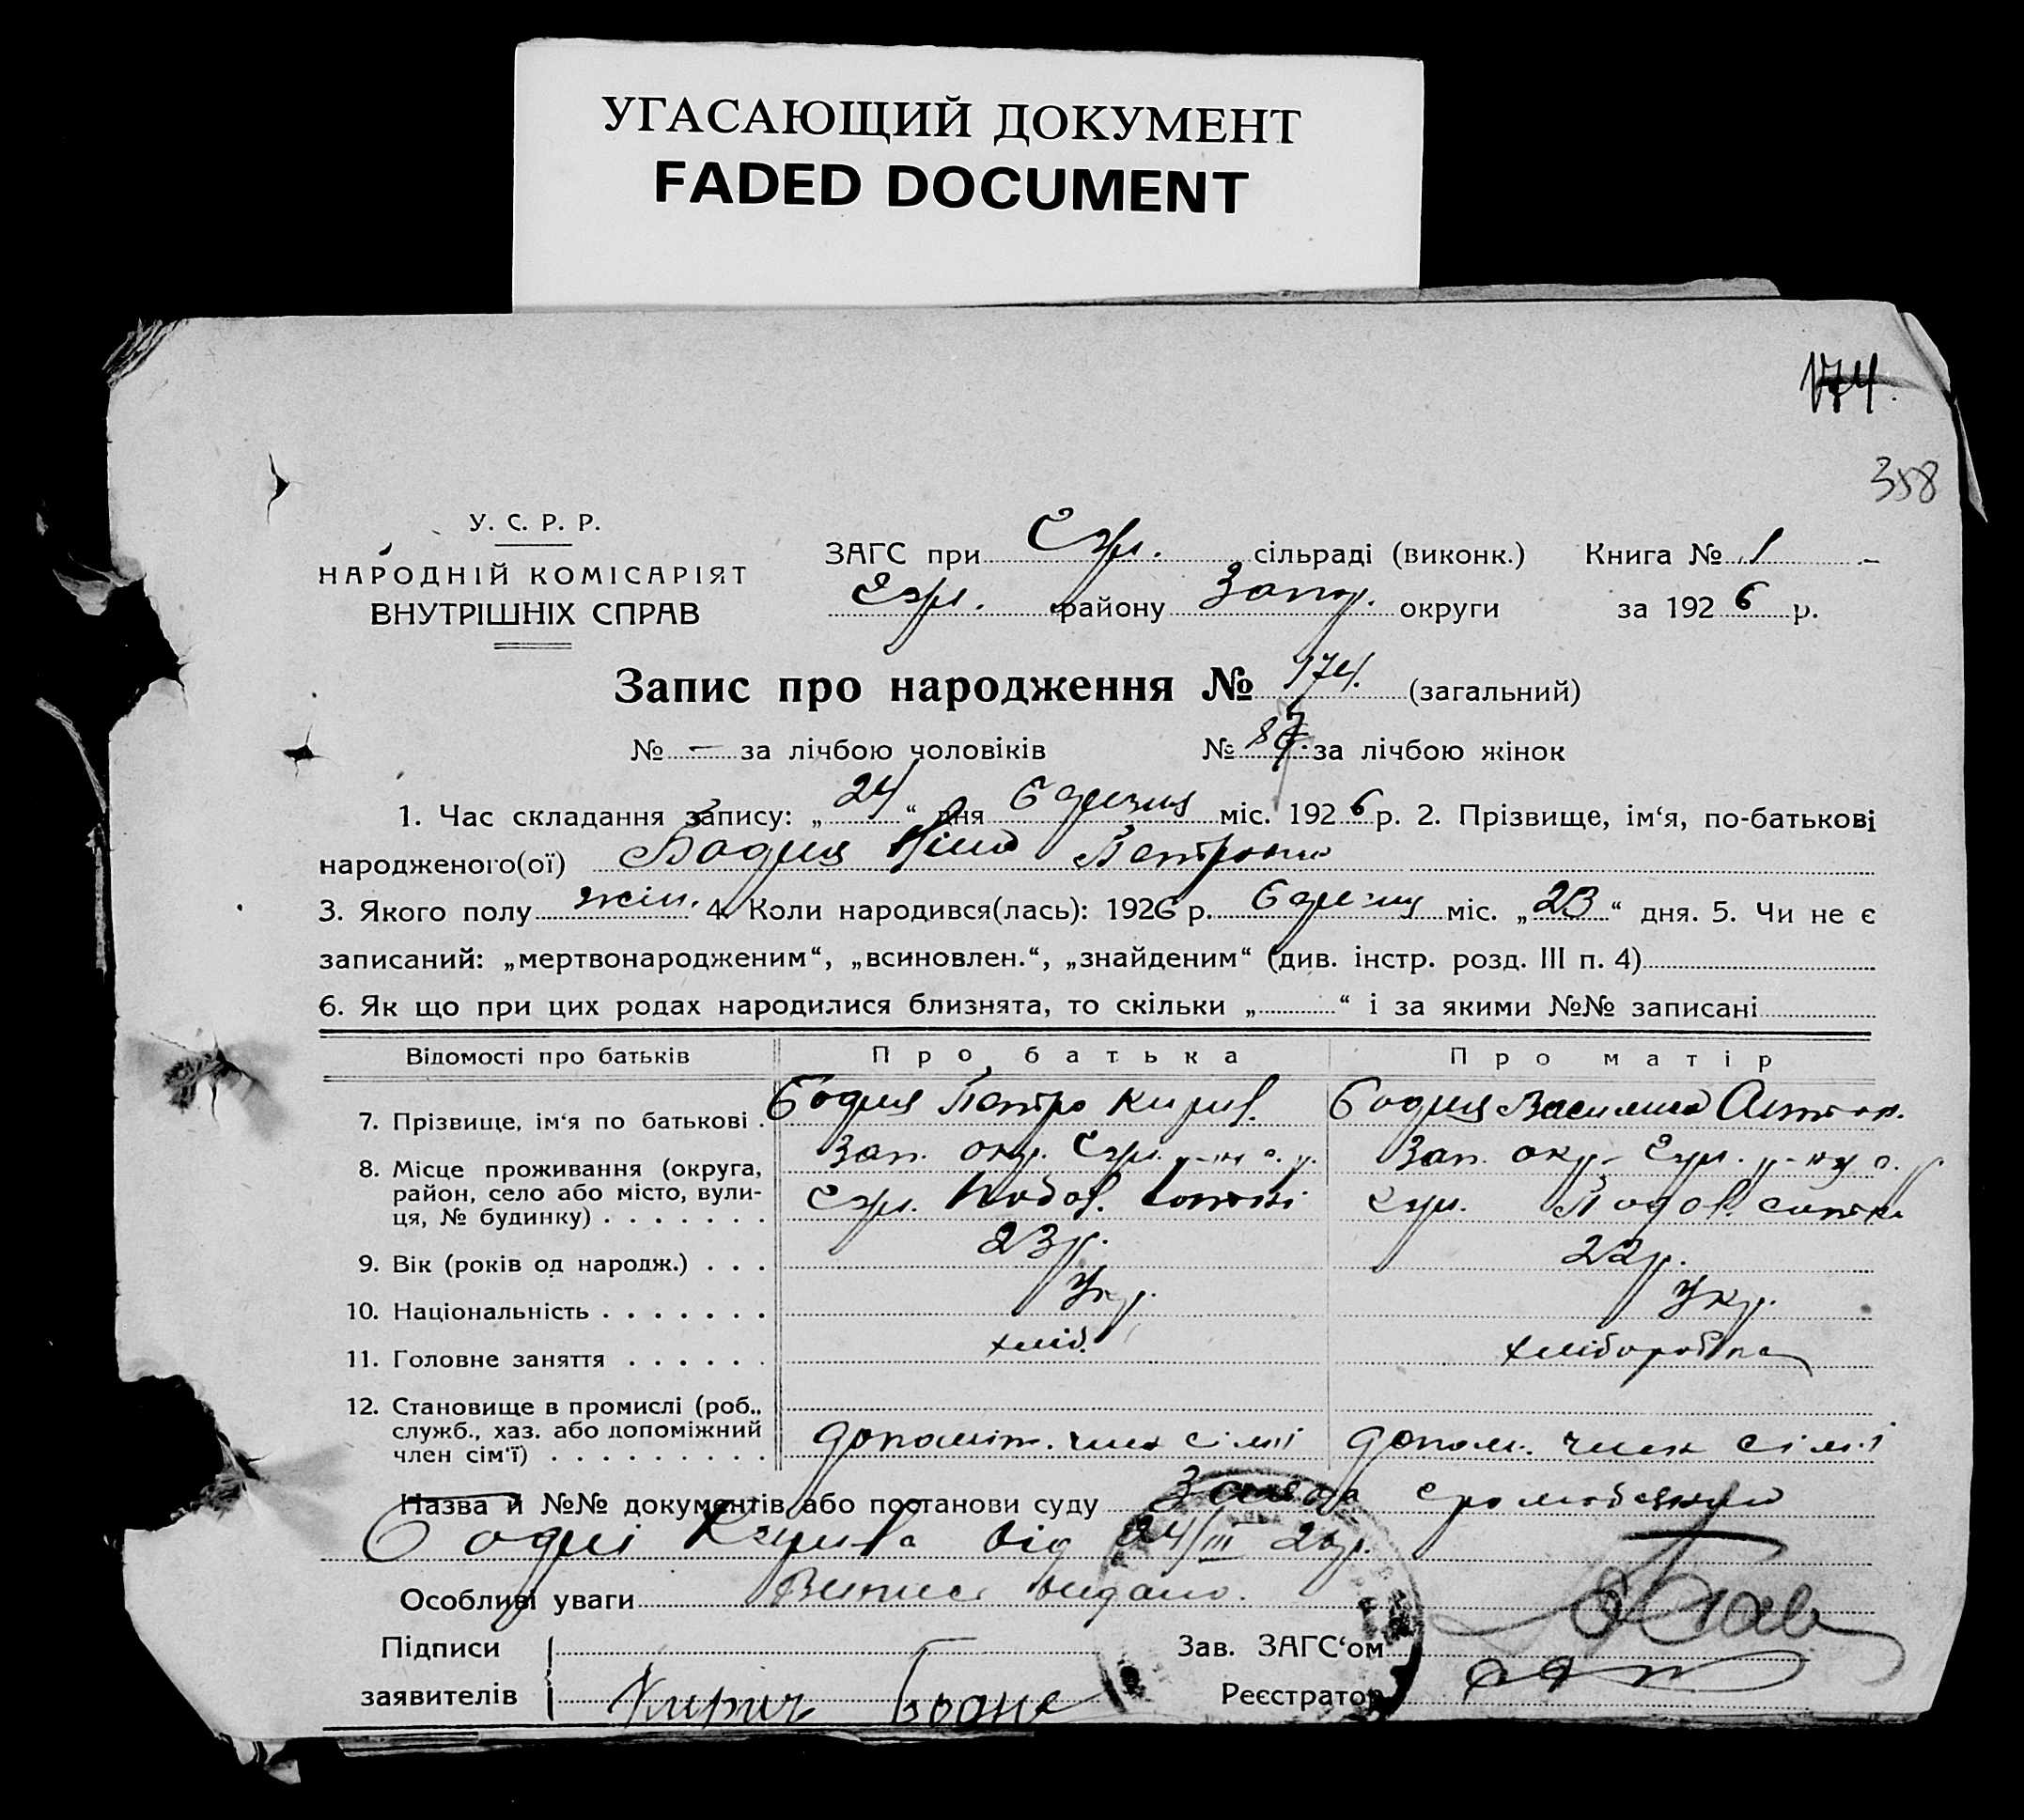 УГАСАЮЩИЙ ДОКУМЕНТ
FADED DOCUMENT
174.
358
У. С. Р. Р.
НАРОДНІЙ КОМІСАРІЯТ
ВНУТРІШНІХ СПРАВ
ЗАГС при сільраді (виконк.) Книга № 1
району Запор. округи за 1926 р.
Запис про народження № 174. (загальний)
№ — за лічбою чоловіків № за лічбою жінок
1. Час складання запису: „24“ дня березня міс. 1926 р. 2. Прізвище, ім‘я, по-батькові
народженого(ої) Петровна
3. Якого полу жін. 4. Коли народився(лась): 1926 р. березня міс. „23“ дня. 5. Чи не є
записаний: „мертвонародженим“, „всиновлен.“, „знайденим“ (див. інстр. розд. III п. 4)
6. Як що при цих родах народилися близнята, то скільки „ “ і за якими №№ записані
Відомості про батьків Про батька Про матір
7. Прізвище, ім‘я по батькові . Петро Кирил. Василина Антон.
8. Місце проживання (округа, Зап. окр. р-ну Зап. окр. р-ну
район, село або місто, вули-
ця, № будинку) . . . . . . .
9. Вік (років од народж.) . . . 23 р. 22 р.
10. Національність . . . . . . . Укр. Укр.
11. Головне заняття . . . . . . хліб. хліборобка
12. Становище в промислі (роб.,
служб., хаз. або допоміжний
член сім‘ї) . . . . . . . . . допоміж. член сімї допом. член сімї
Назва й №№ документів або постанови суду Заява громадянина
від 24/III 26 р.
Особливі уваги Випис видано.
Підписи Зав. ЗАГС‘ом
заявителів Реєстратор